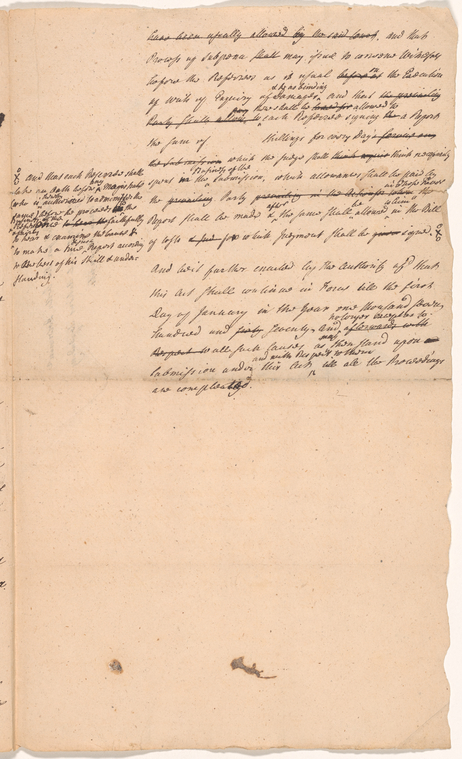 have been usually allowed by the said Court, and that
Process of subpena shall may issue to convene Witnesses
before the Referees as is usual before at the Execution
of Writs of Enquiry of Damages, and that the prevailing
& by no binding
Party shall there shall be allowed to each Referee signing the a Report
the sum of Shillings for every Day
the Submission which the Judge shall think necessarily
Business of the
spent in the Submission, which allowances shall be paid by
the prevailing Party prevailing in the Action in whose Favour
Report shall be made & the same shall be allowed in the Bill
after
of Costs for which Judgment shall be given signed.
And that each Referee shall
take an Oath before any Magistrate
(who is authorised to administer the
same) before he proceeds to the
Business of the
Reference faithfully
to hear & examine the Cause &
to make a true Report according
to the best of his skill & under
standing.
And be it further enacted by the Authority afd. that
this Act shall continue in Force till the first
Day of January in the Year one thousand seven
hundred and sixty seventy, and no longer except as to
afterwards with
Respect to all such Causes as then stand upon
and with Respect to them
Submission under this Act, till all the Proceedings
are compleated.